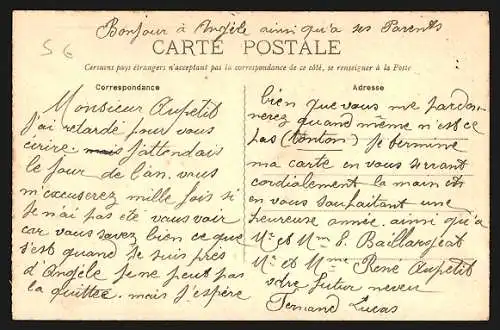 Bonjour à Angèle ainsi qu'a ses Parents
S6
CARTE POSTALE
Certains pays étrangers n'acceptant pas la correspondance de ce côté, se renseigner à la Poste
Correspondance
Monsieur Aupetit
j'ai retardé pour vous
ecrire. mais j'attendais
le jour de l'an. vous
m'excuserez mille fois si
je n'ai pas eté vous voir
car vous savez bien ce que
s'est quand je suis près
d'Angèle je ne peut pas
la quittée. mais j'espère
Adresse
bien que vous me pardon-
nerez quand même n'est ce
pas (tonton) je termine
ma carte en vous serrant
cordialement la main et
en vous souhaitant une
heureuse année. ainsi qu'a
Mr et Mm E. Baillargeat
Mr et Mme René Aupetit
votre futur neveu
Fernand Lucas